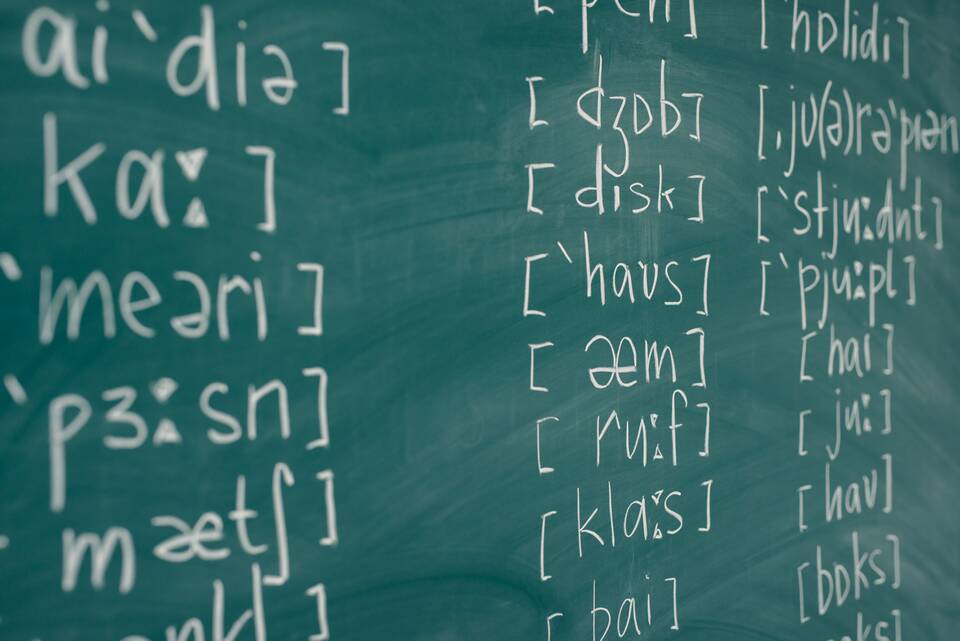 ai`diə ]
kaː ]
`meəri ]
`pɜːsn ]
mætʃ ]
[ pen ]
[ dʒɒb ]
[ disk ]
[ `haʊs ]
[ æm ]
[ ruːf ]
[ klaːs ]
[ bai ]
[ `hɒlidi ]
[ ,jʊ(ə)rə`pɪən
[ `stjuːdnt ]
[ `pjuːpl ]
[ hai ]
[ juː ]
[ haʊ ]
[ bɒks ]